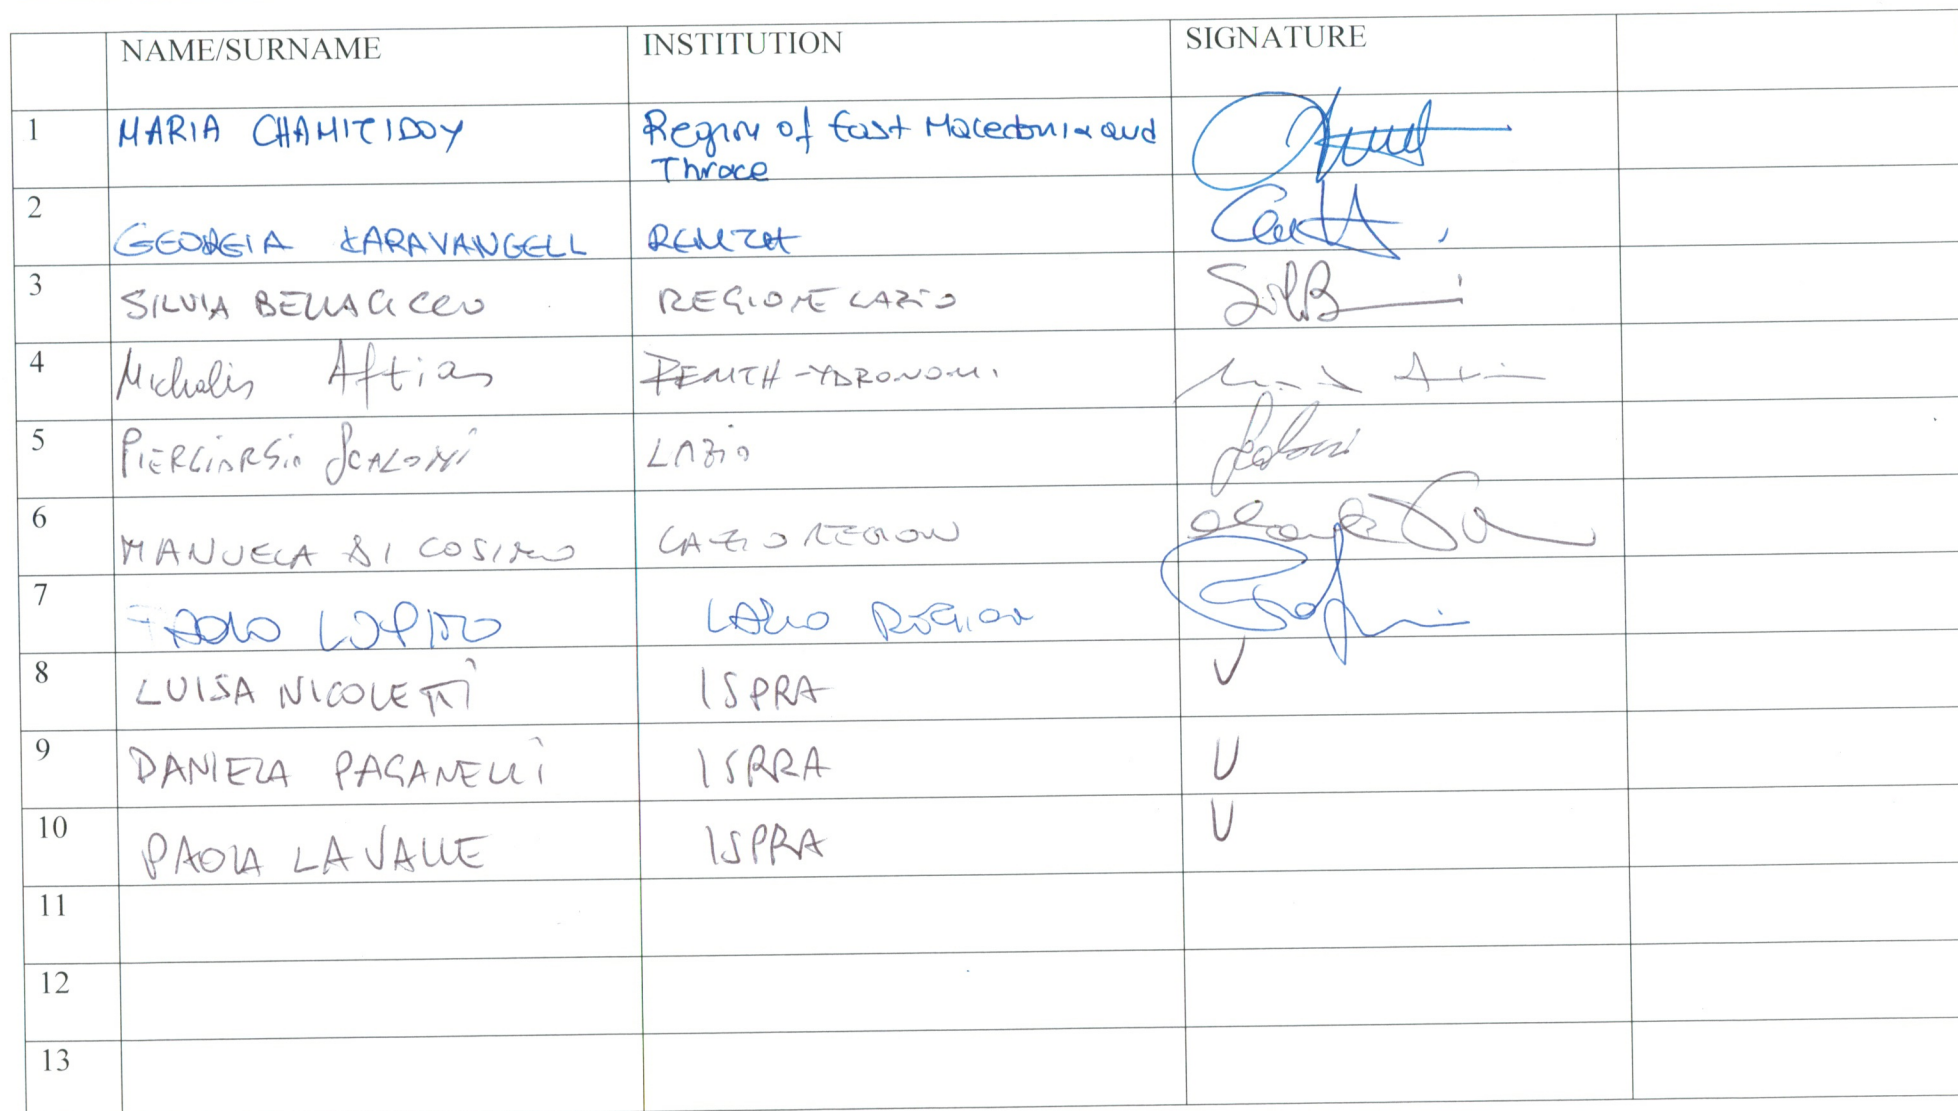 NAME/SURNAME INSTITUTION SIGNATURE
1 MARIA CHAMITIDOY Region of East Macedonia and
Thrace
2 GEORGIA KARAVANGELL REMTH
3 SILVIA REGIONE LAZIO
4 Michalis Aftias REMTH-YDRONOMI
5 PIERGIORGIO SCALONI LAZIO
6 MANUELA DI COSIMO LAZIO REGION
7 PAOLO LUPINO LAZIO REGION
8 LUISA NICOLETTI ISPRA V
9 DANIELA PAGANELLI ISPRA V
10 PAOLA LA VALLE ISPRA V
11
12
13